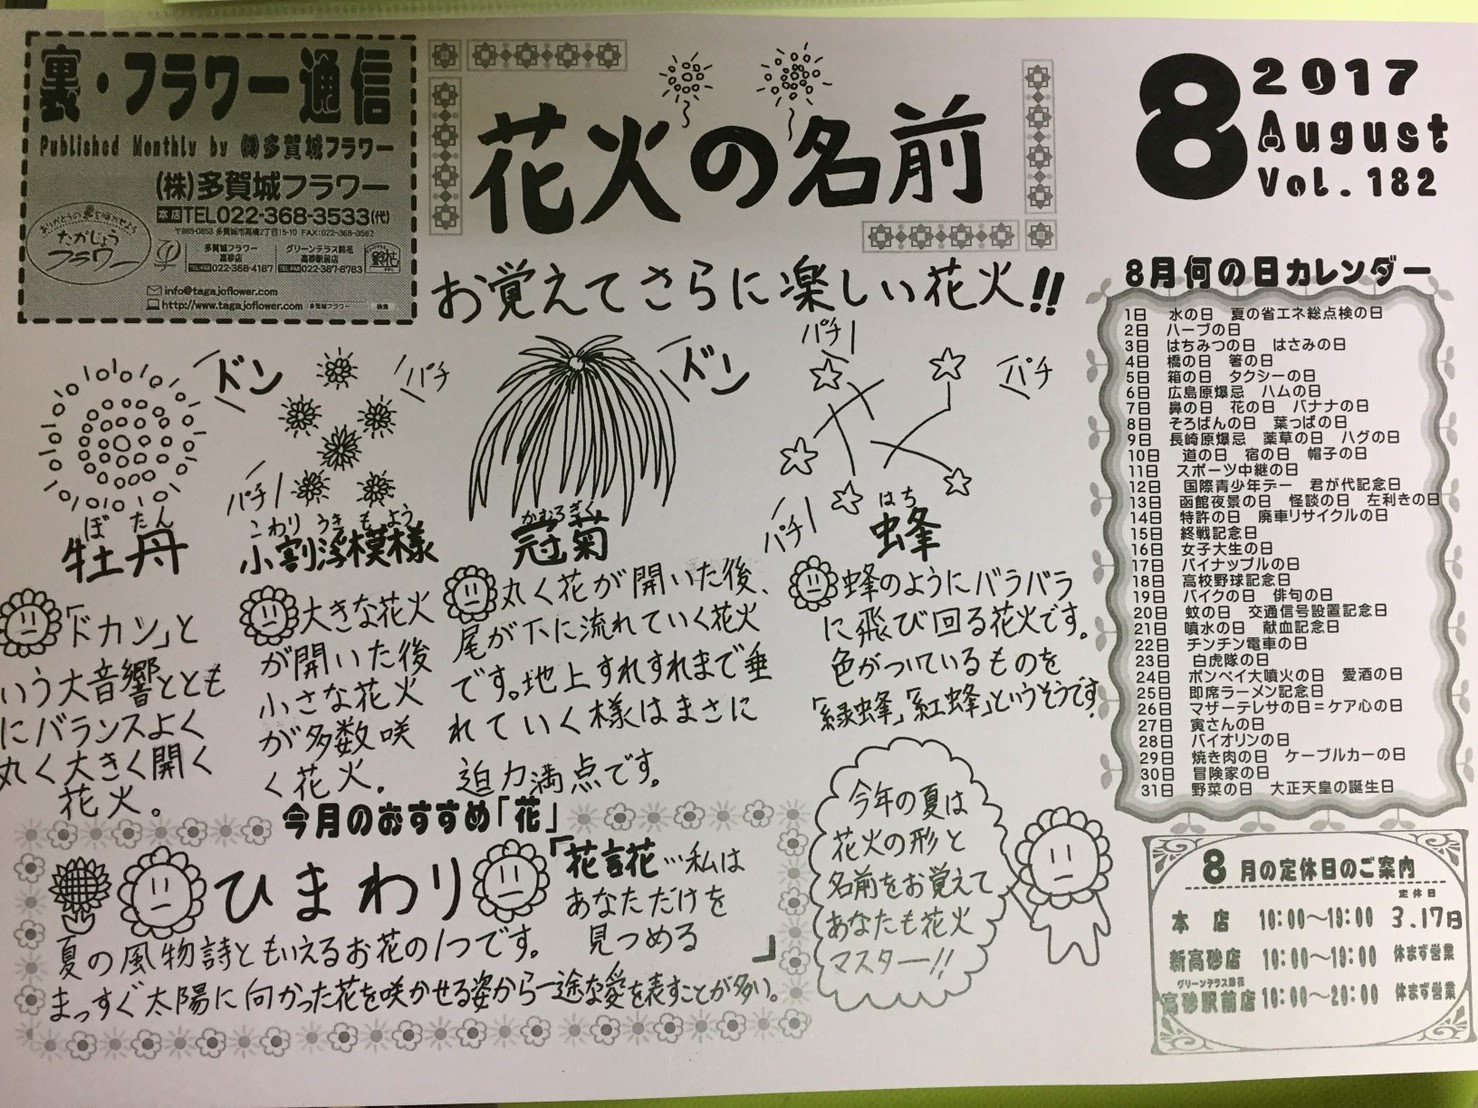 裏・フラワー通信
Published Monthly by ㈱多賀城フラワー
(株)多賀城フラワー
本店 TEL022-368-3533(代)
〒985-0853 多賀城市高橋2丁目15-10 FAX:022-368-3562
ありがとうの夢を咲かせよう
たがじょう
フラワー
多賀城フラワー
高砂店
TEL/FAX 022-358-4187
グリーンテラス鈴花
高砂駅前店
TEL/FAX 022-387-8783
info@tagajoflower.com
http://www.tagajoflower.com 多賀城フラワー 検索
花火の名前
お覚えてさらに楽しい花火!!
8 2017
August
Vol.182
ドン
パチ
パチ
ぼたん
牡丹
「ドカン」と
いう大音響ととも
にバランスよく
丸く大きく開く
花火。
こわりうきもよう
小割浮模様
大きな花火
が開いた後
小さな花火
が多数咲
く花火.
ドン
かむろぎく
冠菊
丸く花が開いた後、
尾が下に流れていく花火
です。地上すれすれまで垂
れていく様はまさに
迫力満点です。
パチ
パチ
パチ
はち
蜂
蜂のようにバラバラ
に飛び回る花火です。
色がついているものを
「緑蜂」「紅蜂」というそうです。
今月のおすすめ「花」
ひまわり
「花言花…私は
あなただけを
見つめる」
夏の風物詩ともいえるお花の1つです。
まっすぐ太陽に向かった花を咲かせる姿から一途な愛を表すことが多い。
今年の夏は
花火の形と
名前をお覚えて
あなたも花火
マスター!!
8月何の日カレンダー
1日 水の日 夏の省エネ総点検の日
2日 ハーブの日
3日 はちみつの日 はさみの日
4日 橋の日 箸の日
5日 箱の日 タクシーの日
6日 広島原爆忌 ハムの日
7日 鼻の日 花の日 バナナの日
8日 そろばんの日 葉っぱの日
9日 長崎原爆忌 薬草の日 ハグの日
10日 道の日 宿の日 帽子の日
11日 スポーツ中継の日
12日 国際青少年デー 君が代記念日
13日 函館夜景の日 怪談の日 左利きの日
14日 特許の日 廃車リサイクルの日
15日 終戦記念日
16日 女子大生の日
17日 パイナップルの日
18日 高校野球記念日
19日 バイクの日 俳句の日
20日 蚊の日 交通信号設置記念日
21日 噴水の日 献血記念日
22日 チンチン電車の日
23日 白虎隊の日
24日 ポンペイ大噴火の日 愛酒の日
25日 即席ラーメン記念日
26日 マザーテレサの日=ケア心の日
27日 寅さんの日
28日 バイオリンの日
29日 焼き肉の日 ケーブルカーの日
30日 冒険家の日
31日 野菜の日 大正天皇の誕生日
8月の定休日のご案内
定休日
本店 10:00〜19:00 3.17日
新高砂店 10:00〜19:00 休まず営業
グリーンテラス鈴花
高砂駅前店 10:00〜20:00 休まず営業